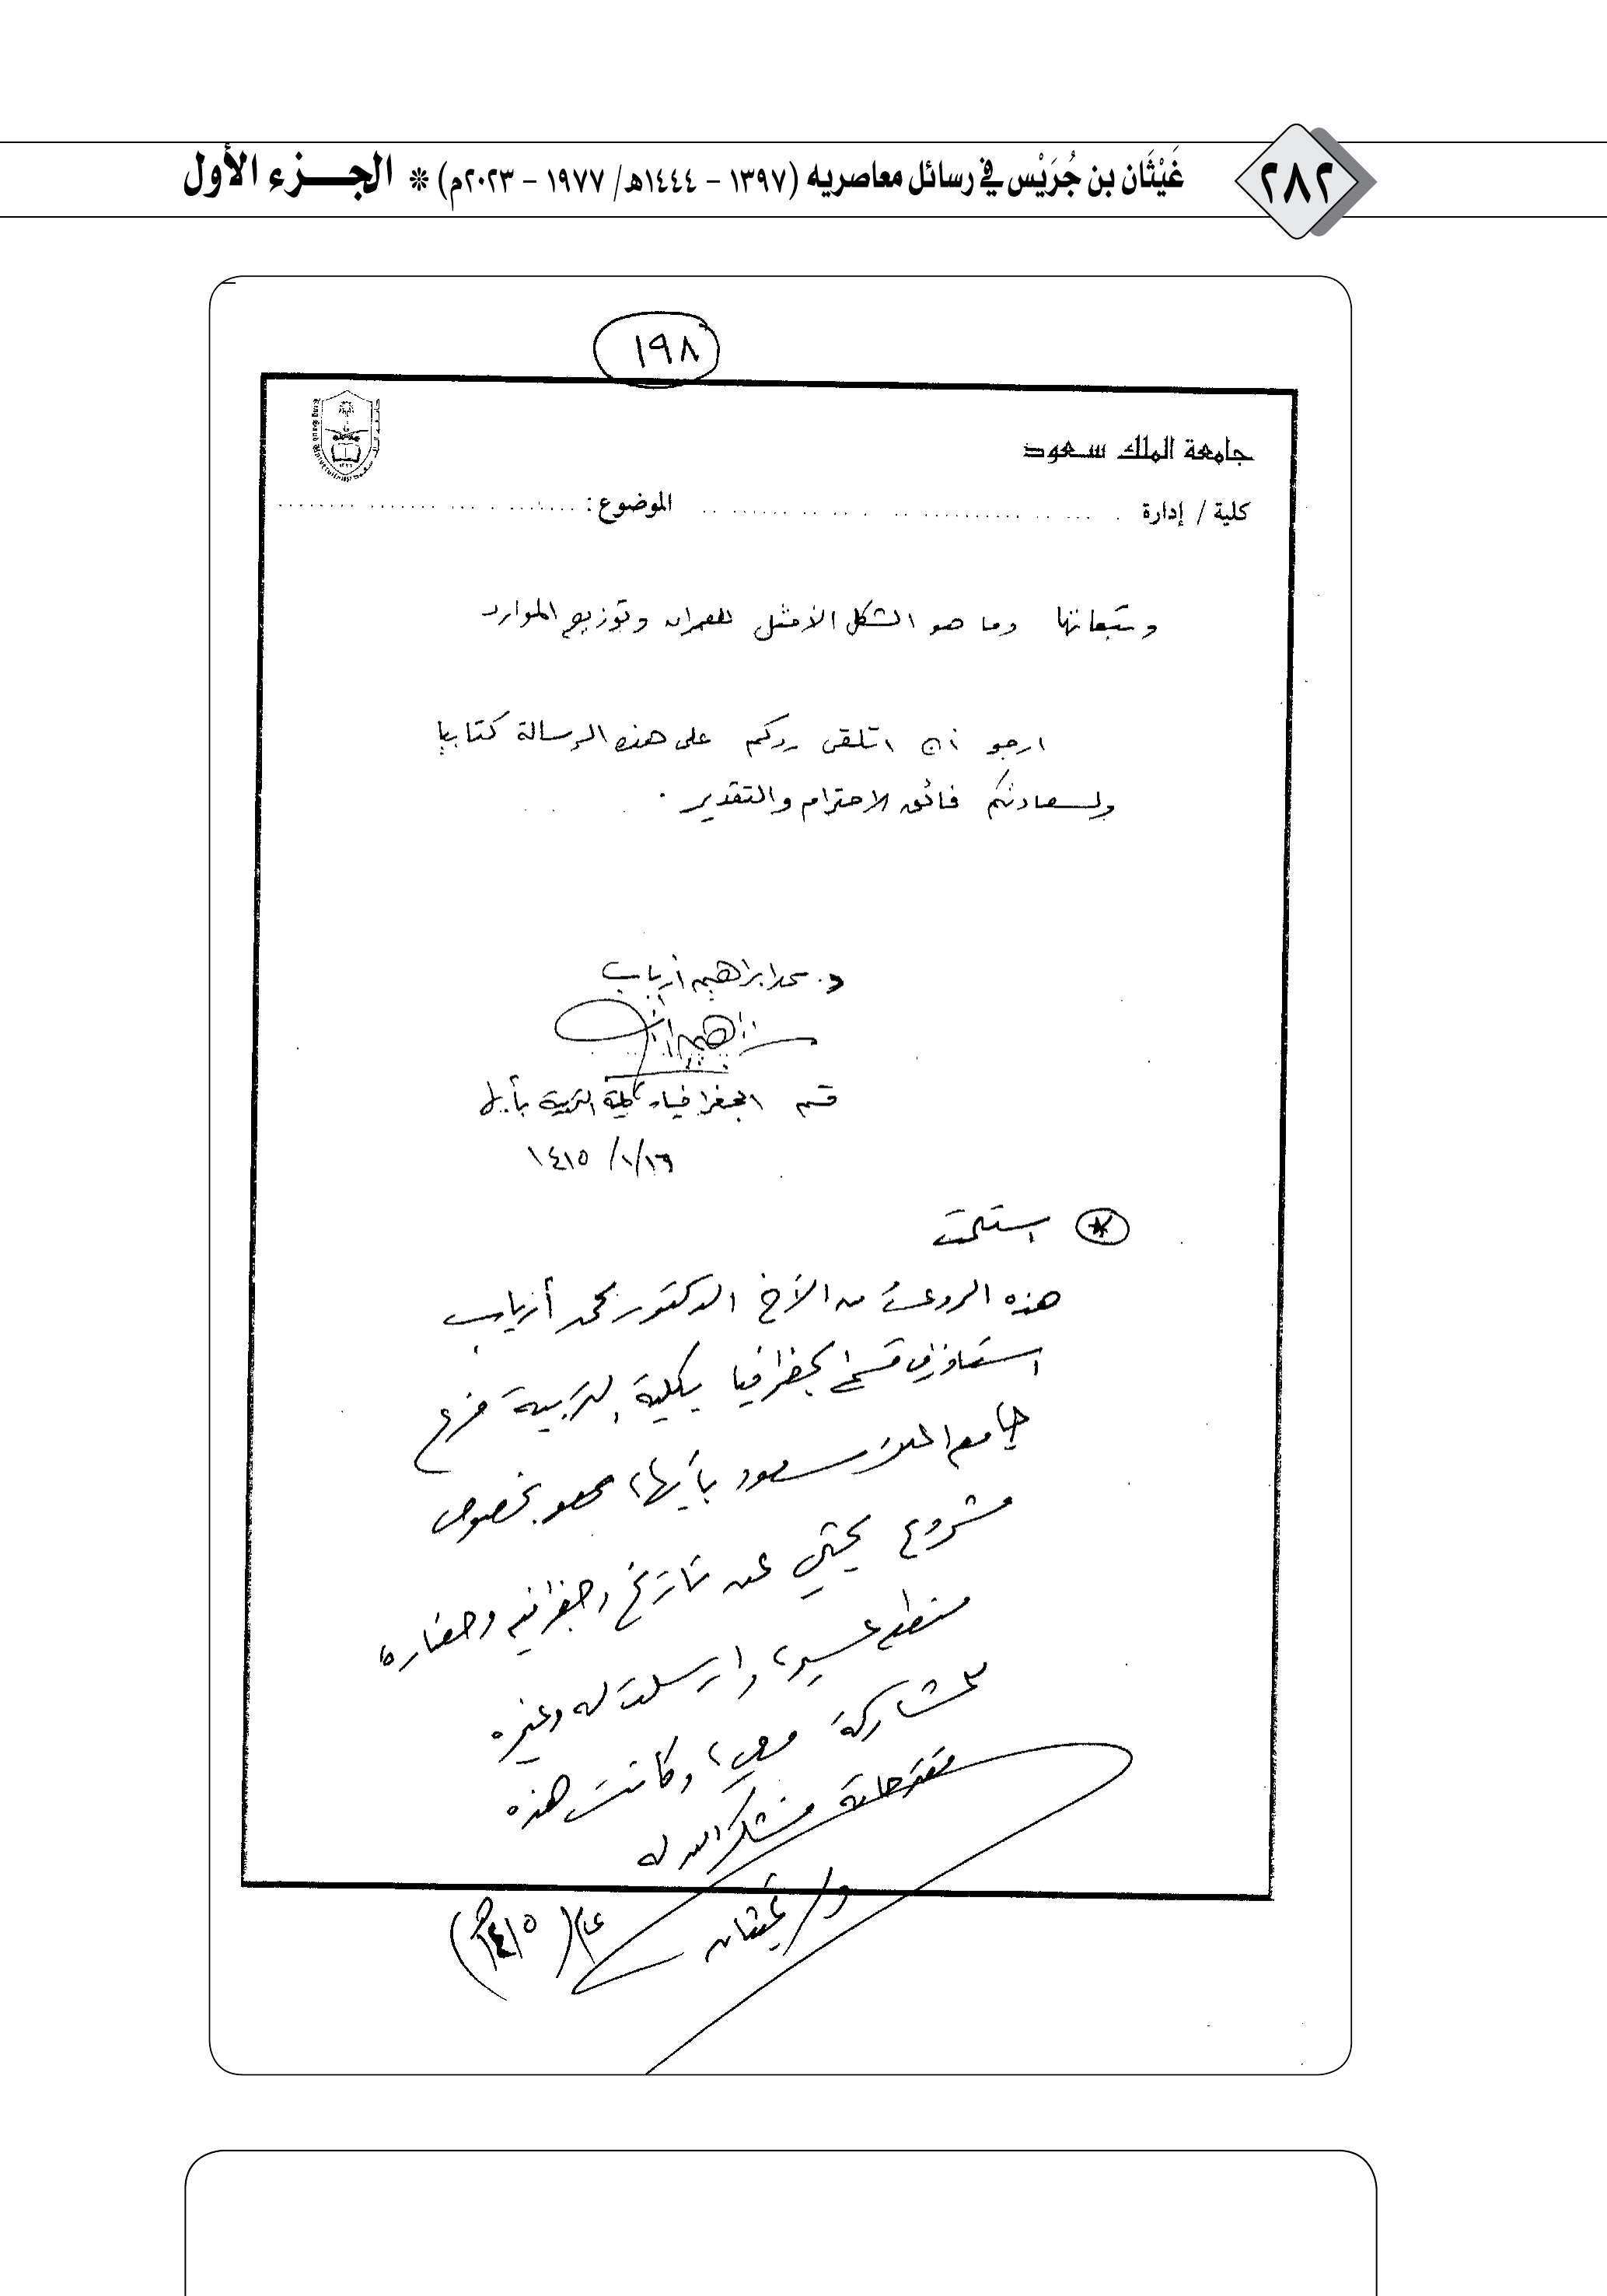 ٢٨٢
غَيْثَان بن جُرَيْس في رسائل معاصريه (١٣٩٧ - ١٤٤٤هـ/ ١٩٧٧ - ٢٠٢٣م) * الجـــزء الأول
١٩٨
جامعة الملك سعود
كلية / إدارة
الموضوع :
وتبعاتها وما هو الشكل الأمثل للعمران وتوزيع الموارد
ارجو أن اتلقى ردكم على هذه الرسالة كتابيا
ولسعادتكم فائق الاحترام والتقدير .
د. محمد ابراهيم أرباب
قسم الجغرافيا، كلية التربية بأبها
١٤١٥ /١/١٦
* استلمت
هذه من الأخ الدكتور محمد أرباب
استاذ في قسم الجغرافيا بكلية التربية فرع
جامعة الملك سعود بأبها، بخصوص
مشروع بحثي عن تاريخ وجغرافية وحضارة
منطقة عسير، وارسلت له وغيره
للمشاركة معي، وكانت هذه
مقترحاته فشكر الله له
د/ غيثان
(١٤١٥هـ)